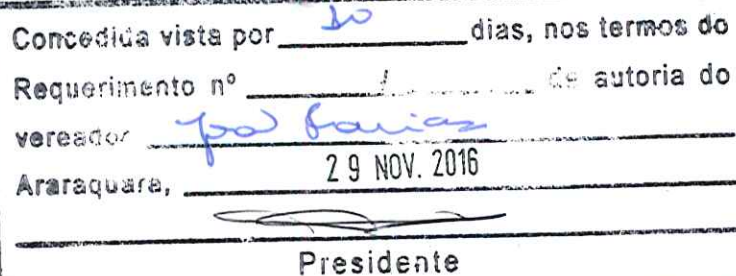 Concedida vista por 10 dias, nos termos do
Requerimento nº / de autoria do
vereador João Farias
Araraquara, 29 NOV. 2016
Presidente